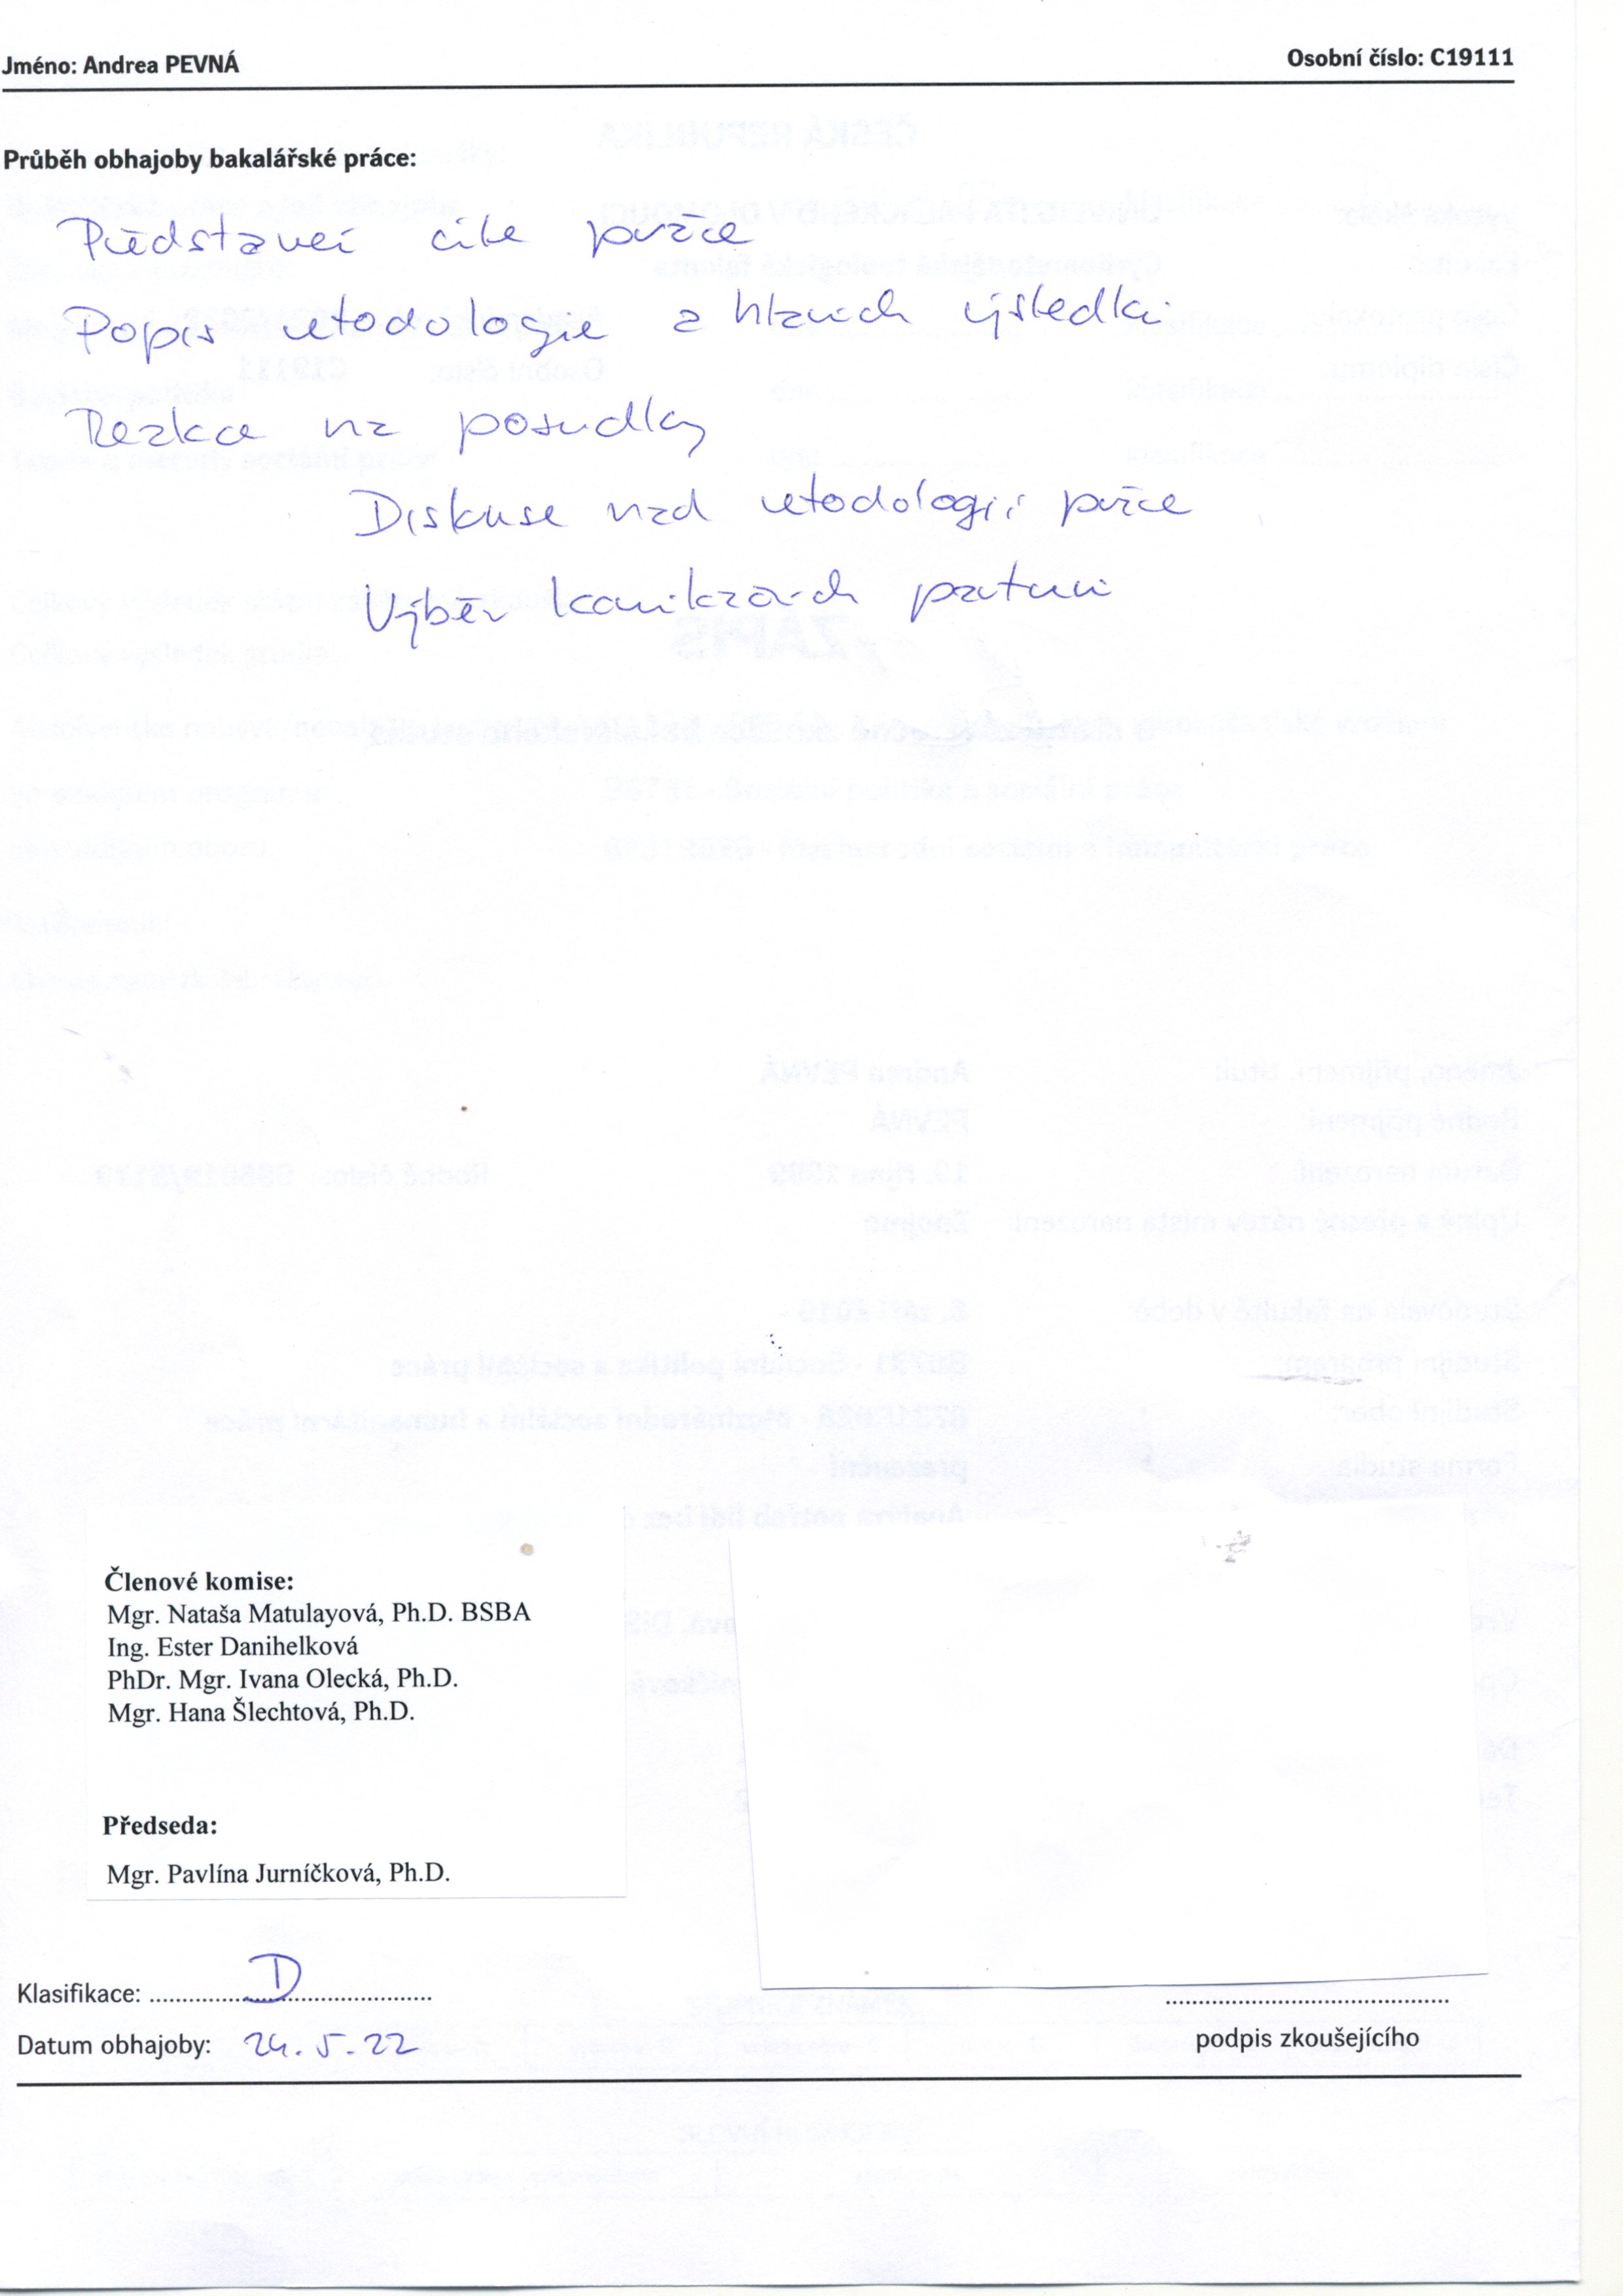 Jméno: Andrea PEVNÁ Osobní číslo: C19111
Průběh obhajoby bakalářské práce:
Představení cíle práce
Popis metodologie a hlavních výsledků
Reakce na posudky
Diskuse nad metodologií práce
Výběr komunikačních partnerů
Členové komise:
Mgr. Nataša Matulayová, Ph.D. BSBA
Ing. Ester Danihelková
PhDr. Mgr. Ivana Olecká, Ph.D.
Mgr. Hana Šlechtová, Ph.D.
Předseda:
Mgr. Pavlína Jurníčková, Ph.D.
Klasifikace: D
Datum obhajoby: 24.5.22
podpis zkoušejícího